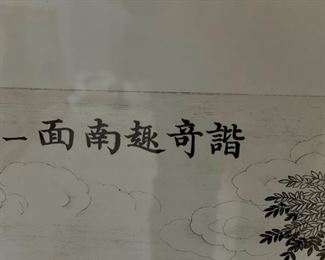 諧奇趣南面一